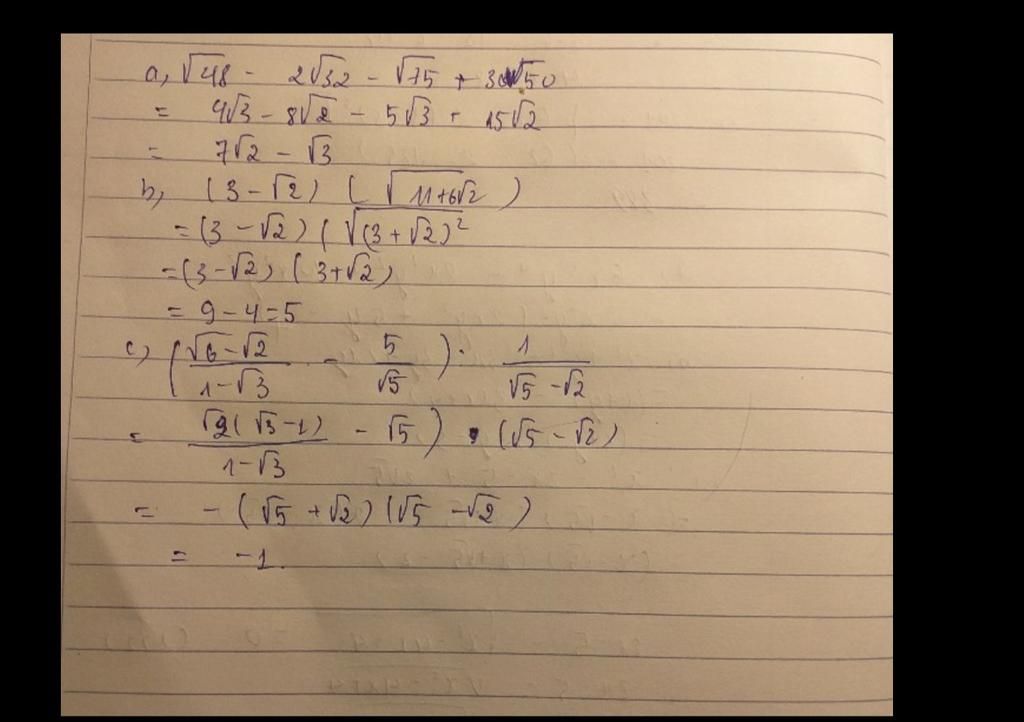 a, √48 - 2√32 - √75 + 3√50
= 4√3 - 8√2 - 5√3 + 15√2
= 7√2 - √3
b, (3 - √2) ( √(11+6√2) )
= (3 - √2) ( √(3 + √2)²
= (3 - √2) ( 3 + √2)
= 9 - 4 = 5
c, ( (√6 - √2)/(1 - √3) - 5/√5 ) : 1/(√5 - √2)
= (√2 (√3 - 1))/(1 - √3) - √5 ) . (√5 - √2)
= - (√5 + √2) (√5 - √2)
= -1.